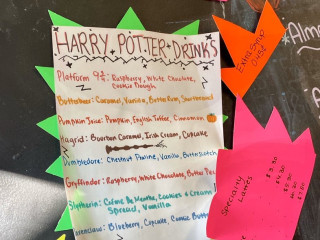 HARRY POTTER DRINKS
Platform 9¾: Raspberry, White Chocolate,
Cookie Dough
Butterbeer: Caramel, Vanilla, Butter Rum, Shortbread
Pumpkin Juice: Pumpkin, English Toffee, Cinnamon
Hagrid: Bourbon Caramel, Irish Cream, Cupcake
Dumbledore: Chestnut Praline, Vanilla, Butterscotch
Gryffindor: Raspberry, White Chocolate, Butter
Slytherin: Crème De Menthe, Cookies & Cream
Spread, Vanilla
Ravenclaw: Blueberry, Cupcake, Cookie Butter
Specialty Lattes